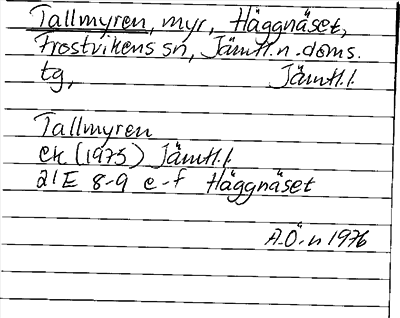 Tallmyren, myr, Häggnäset,
Frostvikens sn, Jämtl. n. doms.
tg, Jämtl. l.
Tallmyren
ek (1975) Jämtl. l.
21E 8-9 e-f Häggnäset
A.Ö-n 1976